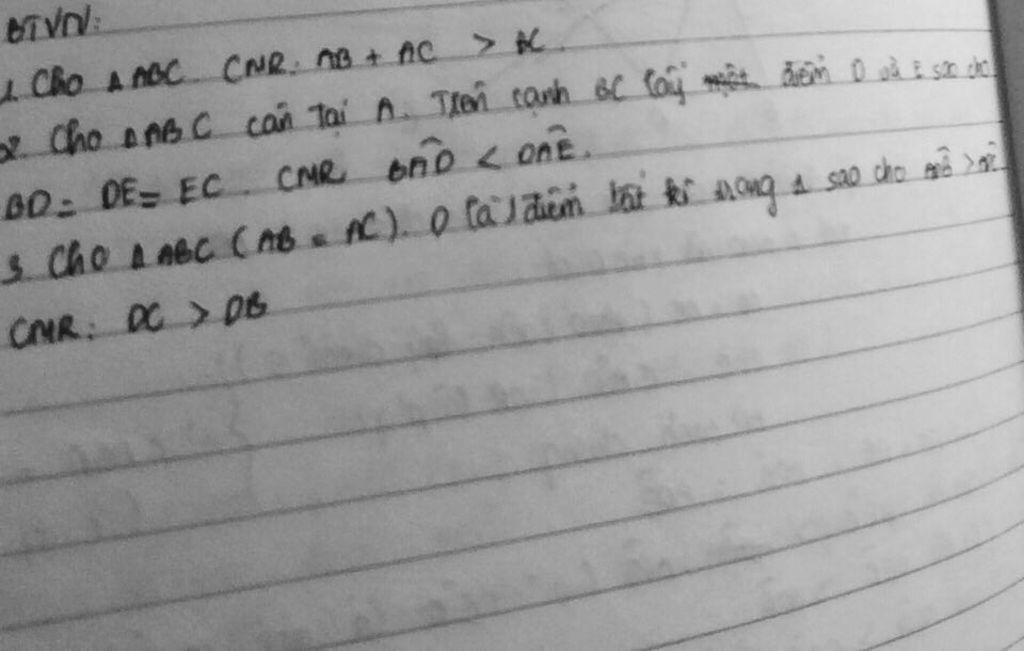 BTVN:
1. Cho Δ ABC CMR: AB + AC > BC.
2. Cho Δ ABC cân tại A. Trên cạnh BC lấy điểm D và E sao cho
BD = DE = EC. CMR BÂD < DÂE.
3. Cho Δ ABC (AB = AC). D là 1 điểm bất kì trong Δ sao cho
CMR: DC > DB